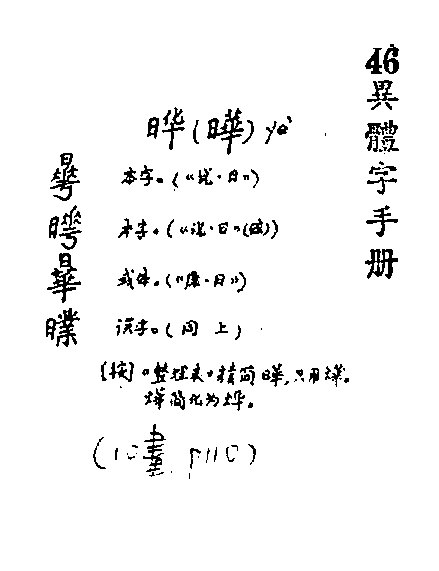 46 異體字手册
晔(曄) yè
本字。(《说·日》)
本字。(《说·日》(段))
曅 或体。(《康·日》)
误字。(同上)
[按]《整理表》精简曄,只用燁。
燁简化为烨。
(10畫 P110)